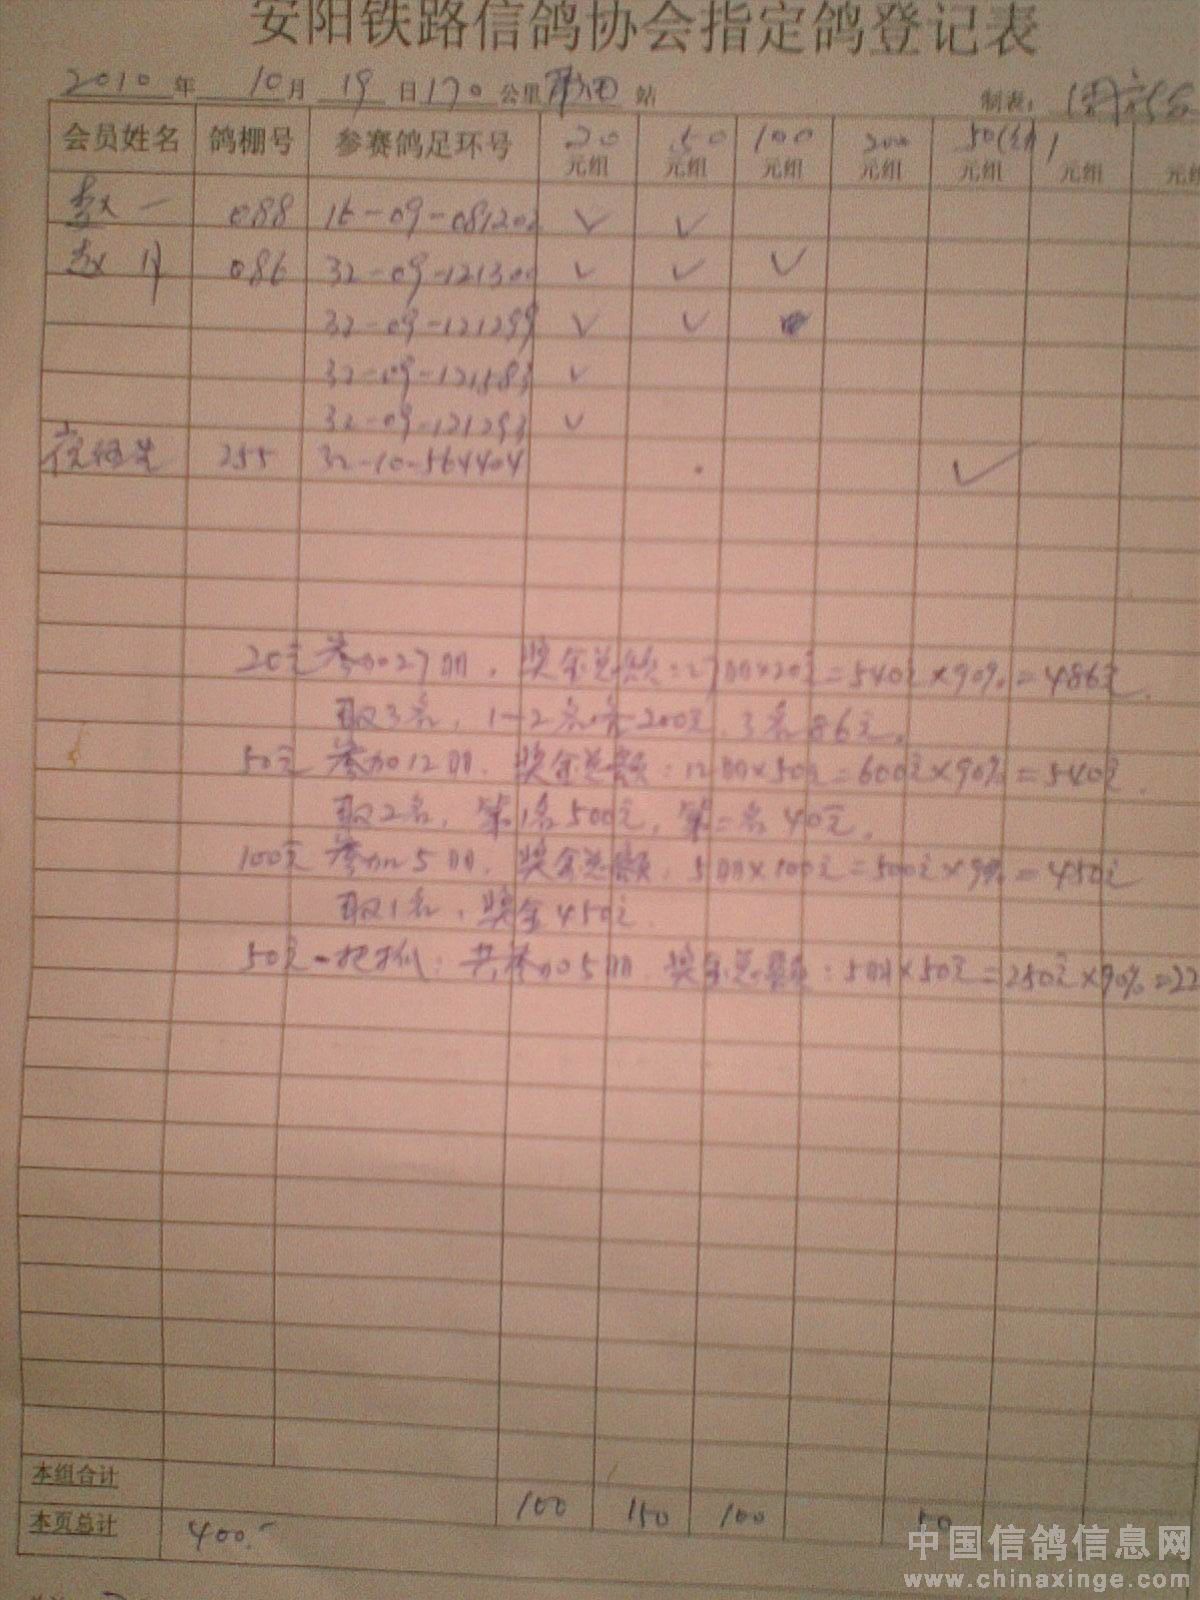 安阳铁路信鸽协会指定鸽登记表
2010年 10月 19日 170公里 站 制表：
会员姓名 鸽棚号 参赛鸽足环号 20元组 50元组 100元组 200元组 50元组 元组 元组
088 16-09-081202 ✓ ✓
086 32-09-121300 ✓ ✓ ✓
32-09-121299 ✓ ✓
32-09-121583 ✓
32-09-121293 ✓
255 32-10-564404 ✓
20元 参加27羽，奖金总额：27羽×20元=540元×90%=486元．
取3名，1-2名各200元．3名86元。
50元 参加12羽．奖金总额：12羽×50元=600元×90%=540元．
取2名，第1名500元，第二名40元。
100元 参加5羽．奖金总额：5羽×100元=500元×90%=450元
取1名，奖金450元．
50元一把抓：共参加5羽．奖金总额：5羽×50元=250元×90%=22
本组合计
本页总计 400.- 100 150 100 50
中国信鸽信息网
www.chinaxinge.com